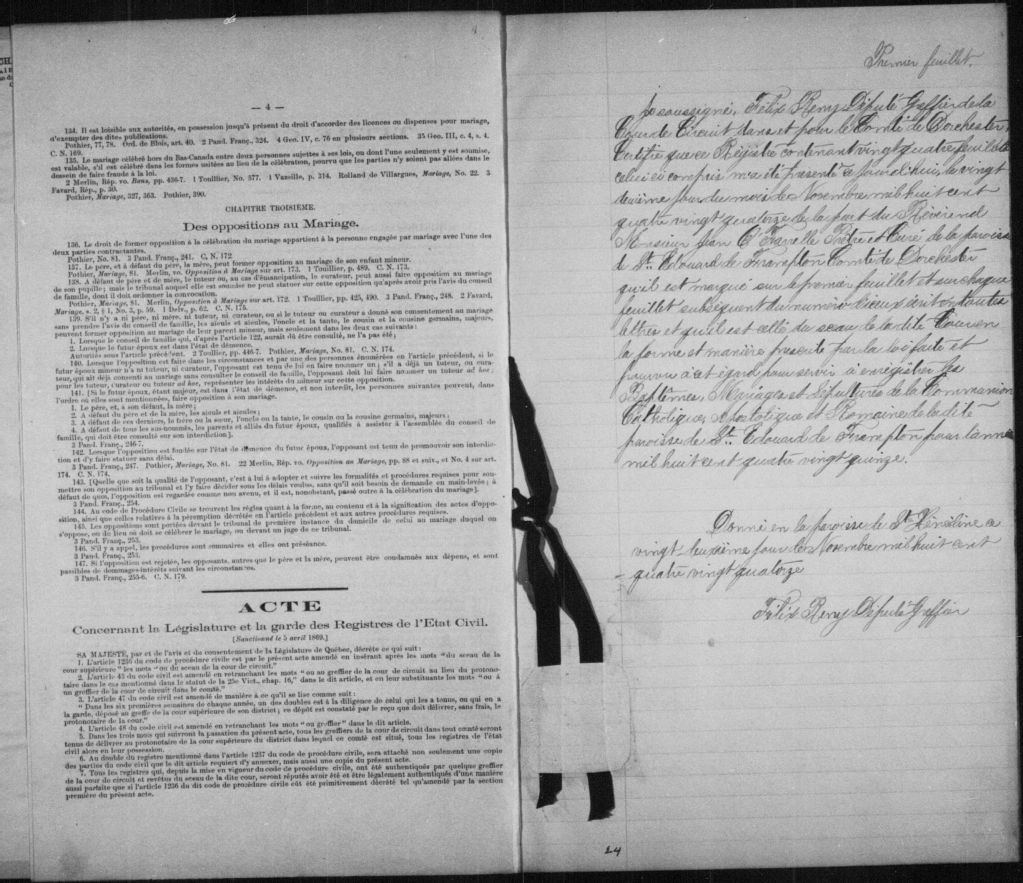 — 4 —
134. Il est loisible aux autorités, en possession jusqu'à présent du droit d'accorder des licences ou dispenses pour mariage,
d'exempter des dites publications.
Pothier, 77, 78. Ord. de Blois, art. 40. 2 Pand. Franç., 324. 4 Geo. IV, c. 76 en plusieurs sections. 35 Geo. III, c. 4, s. 4.
C. N. 169.
135. Le mariage célébré hors du Bas-Canada entre deux personnes sujettes à ses lois, ou dont l'une seulement y est soumise,
est valable, s'il est célébré dans les formes usitées au lieu de la célébration, pourvu que les parties n'y soient pas allées dans le
dessein de faire fraude à la loi.
2 Merlin, Rép. vo. Bans, pp. 436-7. 1 Toullier, No. 577. 1 Vazeille, p. 314. Rolland de Villargues, Mariage, No. 22. 3
Favard, Rép., p. 30.
Pothier, Mariage, 327, 363. Pothier, 390.
CHAPITRE TROISIEME.
Des oppositions au Mariage.
136. Le droit de former opposition à la célébration du mariage appartient à la personne engagée par mariage avec l'une des
deux parties contractantes.
Pothier, No. 81. 3 Pand. Franç., 241. C. N. 172
137. Le père, et à défaut du père, la mère, peut former opposition au mariage de son enfant mineur.
Pothier, Mariage, 81. Merlin, vo. Opposition à Mariage sur art. 173. 1 Touillier, p. 489. C. N. 173.
138. A défaut de père et de mère, le tuteur ou, au cas d'émancipation, le curateur, peut aussi faire opposition au mariage
de son pupille; mais le tribunal auquel elle est soumise ne peut statuer sur cette opposition qu'après avoir pris l'avis du conseil
de famille, dont il doit ordonner la convocation.
Pothier, Mariage, 81. Merlin, Opposition à Mariage sur art. 172. 1 Toullier, pp. 425, 490. 3 Pand. Franç., 248. 2 Favard,
Mariage, s. 2, § 1, No. 3, p. 59. 1 Delv., p. 62. C. N. 175.
139. S'il n'y a ni père, ni mère, ni tuteur, ni curateur, ou si le tuteur ou curateur a donné son consentement au mariage
sans prendre l'avis du conseil de famille, les aïeuls et aïeules, l'oncle et la tante, le cousin et la cousine germains, majeurs,
peuvent former opposition au mariage de leur parent mineur, mais seulement dans les deux cas suivants:
1. Lorsque le conseil de famille qui, d'après l'article 122, aurait dû être consulté, ne l'a pas été;
2. Lorsque le futur époux est dans l'état de démence.
Autorités sous l'article précédent. 2 Toullier, pp. 446-7. Pothier, Mariage, No. 81. C. N. 174.
140. Lorsque l'opposition est faite dans les circonstances et par une des personnes énumérées en l'article précédent, si le
futur époux mineur n'a ni tuteur, ni curateur, l'opposant est tenu de lui en faire nommer un; s'il a déjà un tuteur, ou cura-
teur, qui ait déjà consenti au mariage sans consulter le conseil de famille, l'opposant doit lui faire nommer un tuteur ad hoc;
pour les tuteur, curateur ou tuteur ad hoc, représenter les intérêts du mineur sur cette opposition.
141. [Si le futur époux, étant majeur, est dans l'état de démence, et non interdit, les personnes suivantes peuvent, dans
l'ordre où elles sont mentionnées, faire opposition à son mariage.
1. Le père, et, à son défaut, la mère;
2. A défaut du père et de la mère, les aïeuls et aïeules;
3. A défaut de ces derniers, le frère ou la sœur, l'oncle ou la tante, le cousin ou la cousine germains, majeurs;
4. A défaut de tous les sus-nommés, les parents et alliés du futur époux, qualifiés à assister à l'assemblée du conseil de
famille, qui doit être consulté sur son interdiction].
3 Pand. Franç., 246-7.
142. Lorsque l'opposition est fondée sur l'état de démence du futur époux, l'opposant est tenu de promouvoir son interdic-
tion et d'y faire statuer sans délai.
3 Pand. Franç., 247. Pothier, Mariage, No. 81. 22 Merlin, Rép. vo. Opposition au Mariage, pp. 88 et suit., et No. 4 sur art.
174. C. N. 174.
143. [Quelle que soit la qualité de l'opposant, c'est à lui à adopter et suivre les formalités et procédures requises pour sou-
mettre son opposition au tribunal et l'y faire décider sous les délais voulus, sans qu'il soit besoin de demande en main-levée; à
défaut de quoi, l'opposition est regardée comme non avenu, et il est, nonobstant, passé outre à la célébration du mariage].
3 Pand. Franç., 254.
144. Au code de Procédure Civile se trouvent les règles quant à la forme, au contenu et à la signification des actes d'oppo-
sition, ainsi que celles relatives à la péremption décrétée en l'article précédent et aux autres procédures requises.
145. Les oppositions sont portées devant le tribunal de première instance du domicile de celui au mariage duquel on
s'oppose, ou de lieu où doit se célébrer le mariage, ou devant un juge de ce tribunal.
3 Pand. Franç., 253.
146. S'il y a appel, les procédures sont sommaires et elles ont préséance.
3 Pand. Franç., 253.
147. Si l'opposition est rejetée, les opposants, autres que le père et la mère, peuvent être condamnés aux dépens, et sont
passibles de dommages-intérêts suivant les circonstances.
3 Pand. Franç., 255-6. C. N. 179.
ACTE
Concernant la Législature et la garde des Registres de l'Etat Civil.
[Sanctionné le 5 avril 1869.]
SA MAJESTÉ, par et de l'avis et du consentement de la Législature de Québec, décrète ce qui suit:
1. L'article 1236 du code de procédure civile est par le présent acte amendé en insérant après les mots "du sceau de la
cour supérieure" les mots "ou de sceau de la cour de circuit."
2. L'article 45 du code civil est amendé en retranchant les mots "ou au greffier de la cour de circuit au lieu du protono-
taire dans le cas mentionné dans le statut de la 25e Vict., chap. 16," dans le dit article, et en leur substituant les mots "ou à
un greffier de la cour de circuit dans le comté."
3. L'article 47 du code civil est amendé de manière à ce qu'il se lise comme suit:
"Dans les six premières semaines de chaque année, un des doubles est à la diligence de celui qui les a tenus, ou qui en a
la garde, déposé au greffe de la cour supérieure de son district; ce dépôt est constaté par le reçu que doit délivrer, sans frais, le
protonotaire de la cour."
4. L'article 48 du code civil est amendé en retranchant les mots "ou greffier" dans le dit article.
5. Dans les trois mois qui suivront la passation du présent acte, tous les greffiers de la cour de circuit dans tout comté seront
tenus de délivrer au protonotaire de la cour supérieure du district dans lequel ce comté est situé, tous les registres de l'état
civil alors en leur possession.
6. Au double du registre mentionné dans l'article 1237 du code de procédure civile, sera attaché non seulement une copie
des parties du code civil que le dit article requiert d'y annexer, mais aussi une copie du présent acte.
7. Tous les registres qui, depuis la mise en vigueur du code de procédure civile, ont été authentiqués par quelque greffier
de la cour de circuit et revêtus du sceau de la dite cour, seront réputés avoir été et être légalement authentiqués d'une manière
aussi parfaite que si l'article 1236 du dit code de procédure civile eût été primitivement décrété tel qu'amendé par la section
première du présent acte.
Premier feuillet.
Je soussigné, Félix Remy Député Greffier de la
Cour de Circuit dans et pour le Comté de Dorchester,
Certifie que ce Registre contenant vingt quatre feuillets
celui ci compris m'a été présenté aujourd'hui, le vingt
deuxième jour du mois de Novembre mil huit cent
quatre vingt quatorze de la part du Révérend
Monsieur Jean O. Prêtre et Curé de la paroisse
de St. Edouard de Frampton Comté de Dorchester
qu'il est marqué sur le premier feuillet et sur chaque
feuillet subséquent du numéro d'iceux écrit en toutes
lettres et qu'il est cellé du sceau de la dite Cour en
la forme et manière prescrite par la loi faite et
pourvu à cet égard pour servir à enregistrer les
Baptêmes, Mariages et Sépultures de la Communion
Catholique, Apostolique et Romaine de la dite
paroisse de St. Edouard de Frampton pour l'année
mil huit cent quatre vingt quinze.
Donné en la paroisse de Ste Hénédine ce
vingt-deuxième jour de Novembre mil huit cent
quatre vingt quatorze
Félix Remy Député Greffier
24